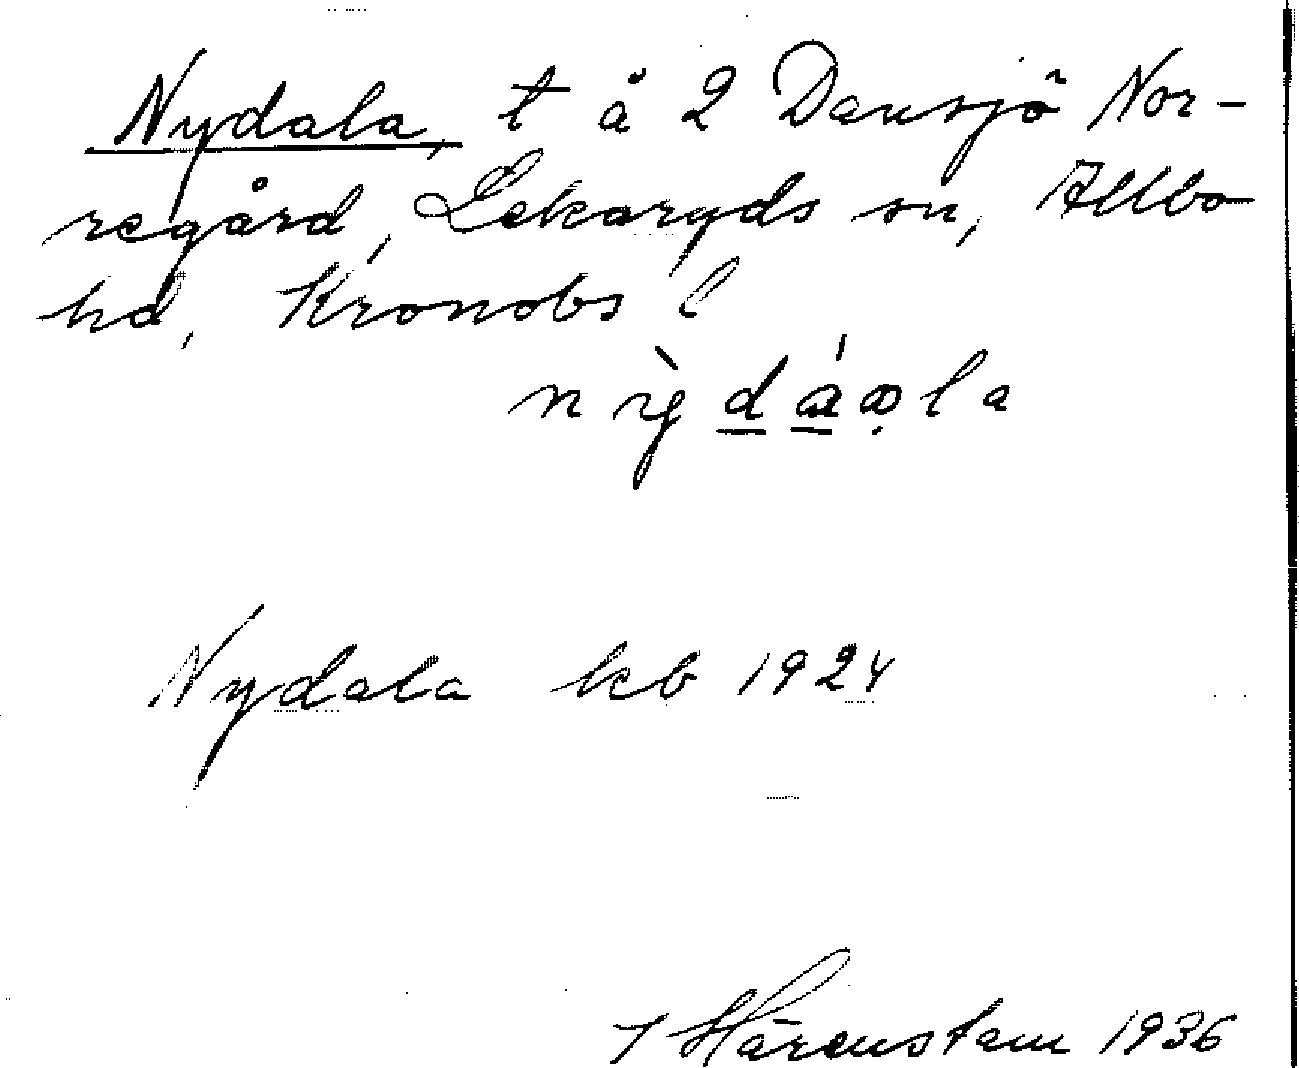 Nydala, t å 2 Dansjö Nor-
regård, Lekaryds sn, Allbo
hd, Kronobs l
Nydala kb 1924
J Hårenstam 1936